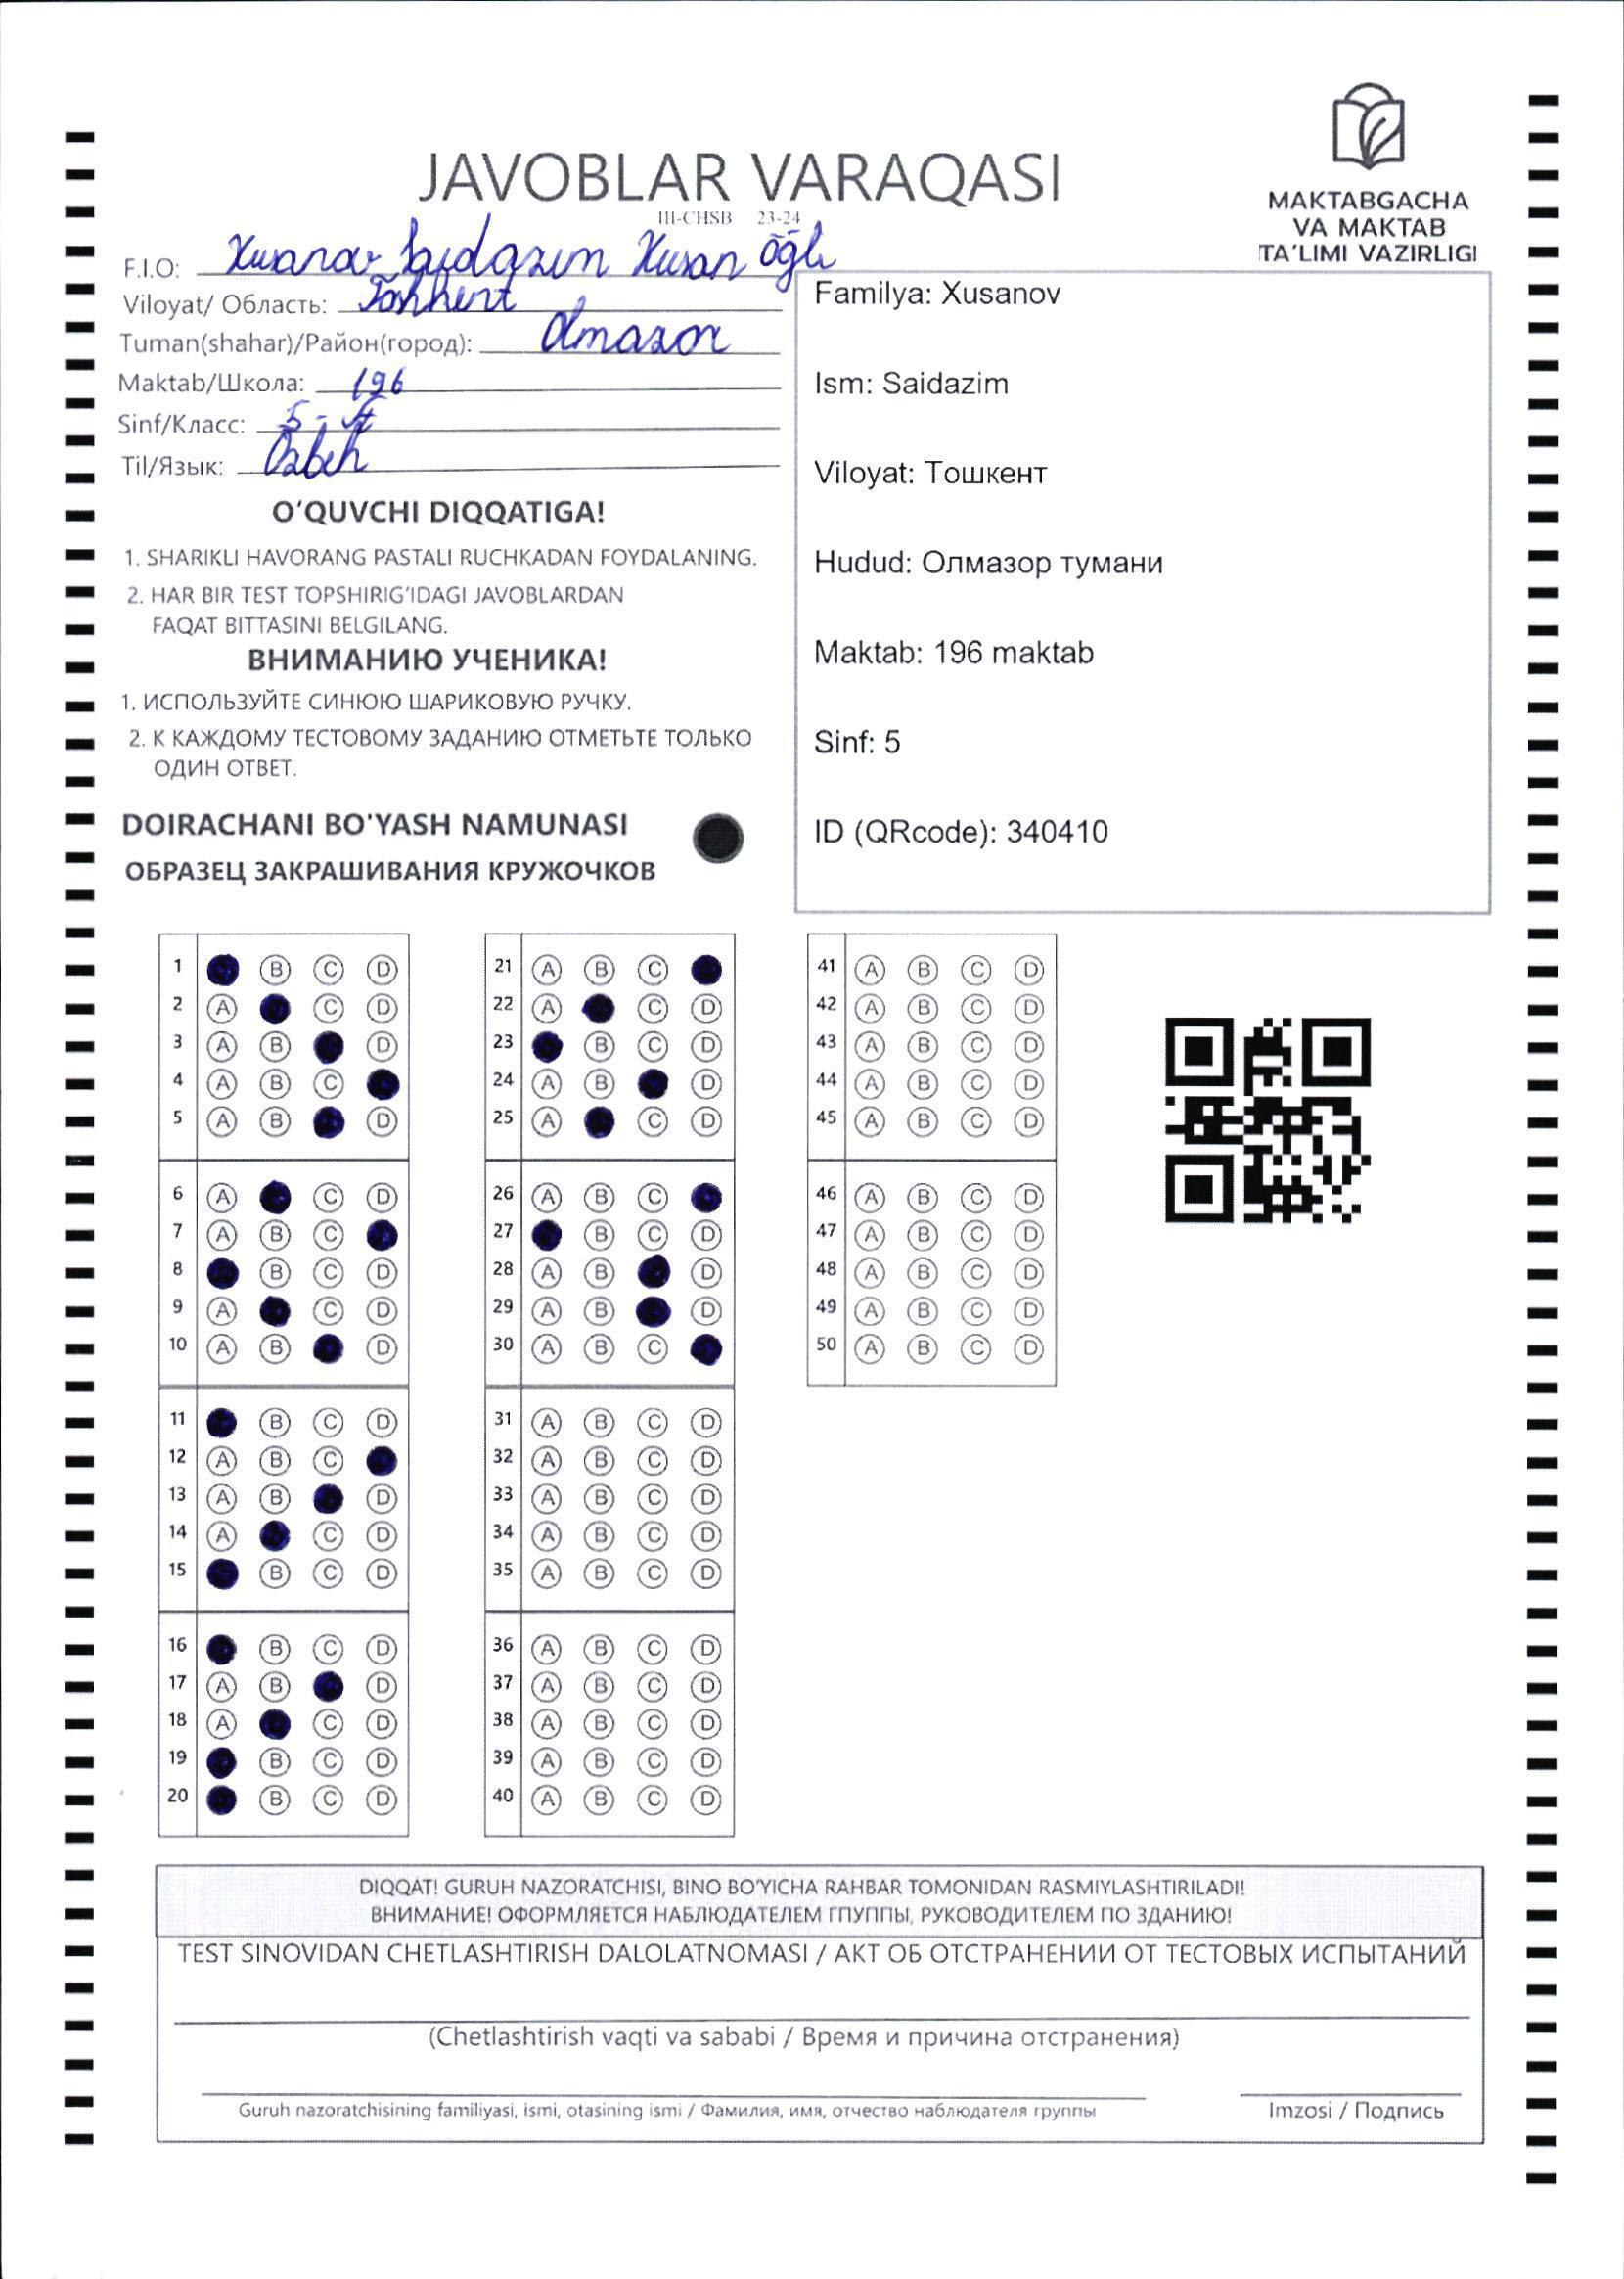 JAVOBLAR VARAQASI
III-CHSB 23-24
MAKTABGACHA
VA MAKTAB
TA'LIMI VAZIRLIGI
F.I.O: Xusanov Saidazim Xusan õğli
Viloyat/ Область: Toshkent
Tuman(shahar)/Район(город): Olmazor
Maktab/Школа: 196
Sinf/Класс: 5-
Til/Язык: Ozbek
O'QUVCHI DIQQATIGA!
1. SHARIKLI HAVORANG PASTALI RUCHKADAN FOYDALANING.
2. HAR BIR TEST TOPSHIRIG'IDAGI JAVOBLARDAN
FAQAT BITTASINI BELGILANG.
ВНИМАНИЮ УЧЕНИКА!
1. ИСПОЛЬЗУЙТЕ СИНЮЮ ШАРИКОВУЮ РУЧКУ.
2. К КАЖДОМУ ТЕСТОВОМУ ЗАДАНИЮ ОТМЕТЬТЕ ТОЛЬКО
ОДИН ОТВЕТ.
DOIRACHANI BO'YASH NAMUNASI
ОБРАЗЕЦ ЗАКРАШИВАНИЯ КРУЖОЧКОВ
Familya: Xusanov
Ism: Saidazim
Viloyat: Тошкент
Hudud: Олмазор тумани
Maktab: 196 maktab
Sinf: 5
ID (QRcode): 340410
1 B C D
2 A C D
3 A B D
4 A B C
5 A B D
6 A C D
7 A B C
8 B C D
9 A C D
10 A B D
11 B C D
12 A B C
13 A B D
14 A C D
15 B C D
16 B C D
17 A B D
18 A C D
19 B C D
20 B C D
21 A B C
22 A C D
23 B C D
24 A B D
25 A C D
26 A B C
27 B C D
28 A B D
29 A B D
30 A B C
31 A B C D
32 A B C D
33 A B C D
34 A B C D
35 A B C D
36 A B C D
37 A B C D
38 A B C D
39 A B C D
40 A B C D
41 A B C D
42 A B C D
43 A B C D
44 A B C D
45 A B C D
46 A B C D
47 A B C D
48 A B C D
49 A B C D
50 A B C D
DIQQAT! GURUH NAZORATCHISI, BINO BO'YICHA RAHBAR TOMONIDAN RASMIYLASHTIRILADI!
ВНИМАНИЕ! ОФОРМЛЯЕТСЯ НАБЛЮДАТЕЛЕМ ГПУППЫ, РУКОВОДИТЕЛЕМ ПО ЗДАНИЮ!
TEST SINOVIDAN CHETLASHTIRISH DALOLATNOMASI / АКТ ОБ ОТСТРАНЕНИИ ОТ ТЕСТОВЫХ ИСПЫТАНИЙ
(Chetlashtirish vaqti va sababi / Время и причина отстранения)
Guruh nazoratchisining familiyasi, ismi, otasining ismi / Фамилия, имя, отчество наблюдателя группы
Imzosi / Подпись